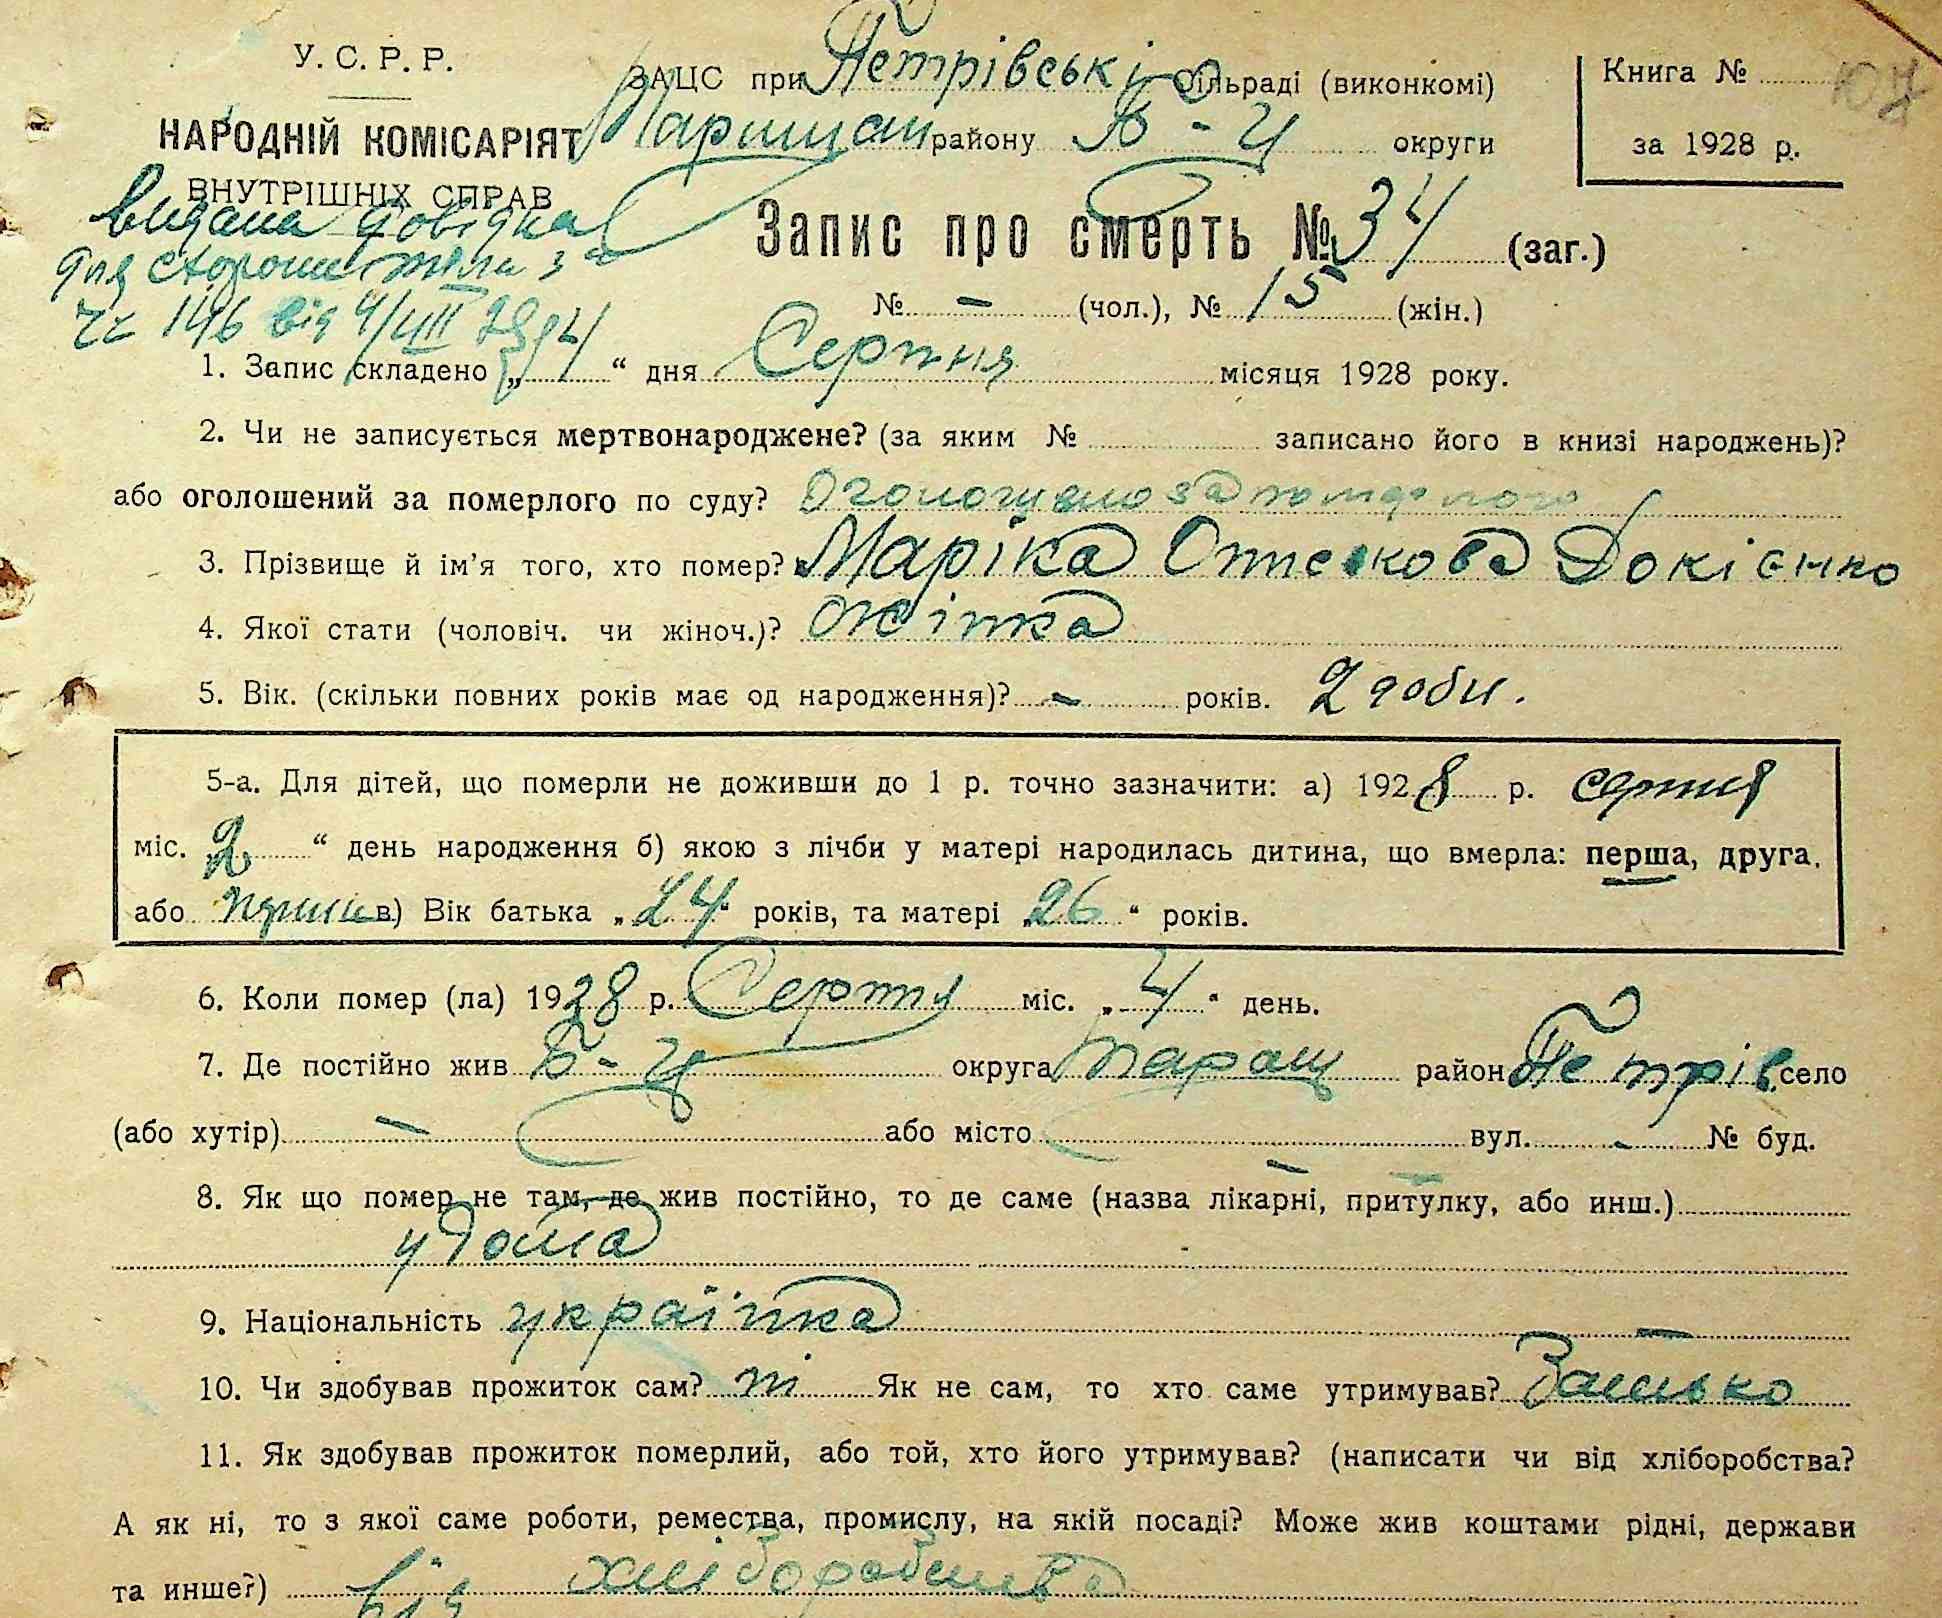 У. С. Р. Р.
НАРОДНІЙ КОМІСАРІЯТ
ВНУТРІШНІХ СПРАВ
видана довідка
для сторони тіла з
Чс 146 від 4/VIII 28
ЗАЦС при Петрівські Сільраді (виконкомі)
району Б-Ц округи
Книга №
за 1928 р.
Запис про смерть № 34 (заг.)
№ – (чол.), № 15 (жін.)
1. Запис складено „ 4 “ дня Серпня місяця 1928 року.
2. Чи не записується мертвонароджене? (за яким № записано його в книзі народжень)?
або оголошений за померлого по суду? Оголошено за померлого
3. Прізвище й ім’я того, хто помер? Маріка Докієнко
4. Якої стати (чоловіч. чи жіноч.)? Жінка
5. Вік. (скільки повних років має од народження)? – років. 2 доби.
5-а. Для дітей, що померли не доживши до 1 р. точно зазначити: а) 1928 р. серпня
міс. 2 “ день народження б) якою з лічби у матері народилась дитина, що вмерла: перша, друга,
або перша в) Вік батька „ 24 “ років, та матері „ 26 “ років.
6. Коли помер (ла) 1928 р. Серпня міс. „ 4 “ день.
7. Де постійно жив Б-Ц округа Таращ район Петрів. село
(або хутір) – або місто вул. - № буд.
8. Як що помер не там, де жив постійно, то де саме (назва лікарні, притулку, або инш.)
у дома
9. Національність українка –
10. Чи здобував прожиток сам? ні Як не сам, то хто саме утримував? Батько
11. Як здобував прожиток померлий, або той, хто його утримував? (написати чи від хліборобства?
А як ні, то з якої саме роботи, ремества, промислу, на якій посаді? Може жив коштами рідні, держави
та инше?) від хліборобства